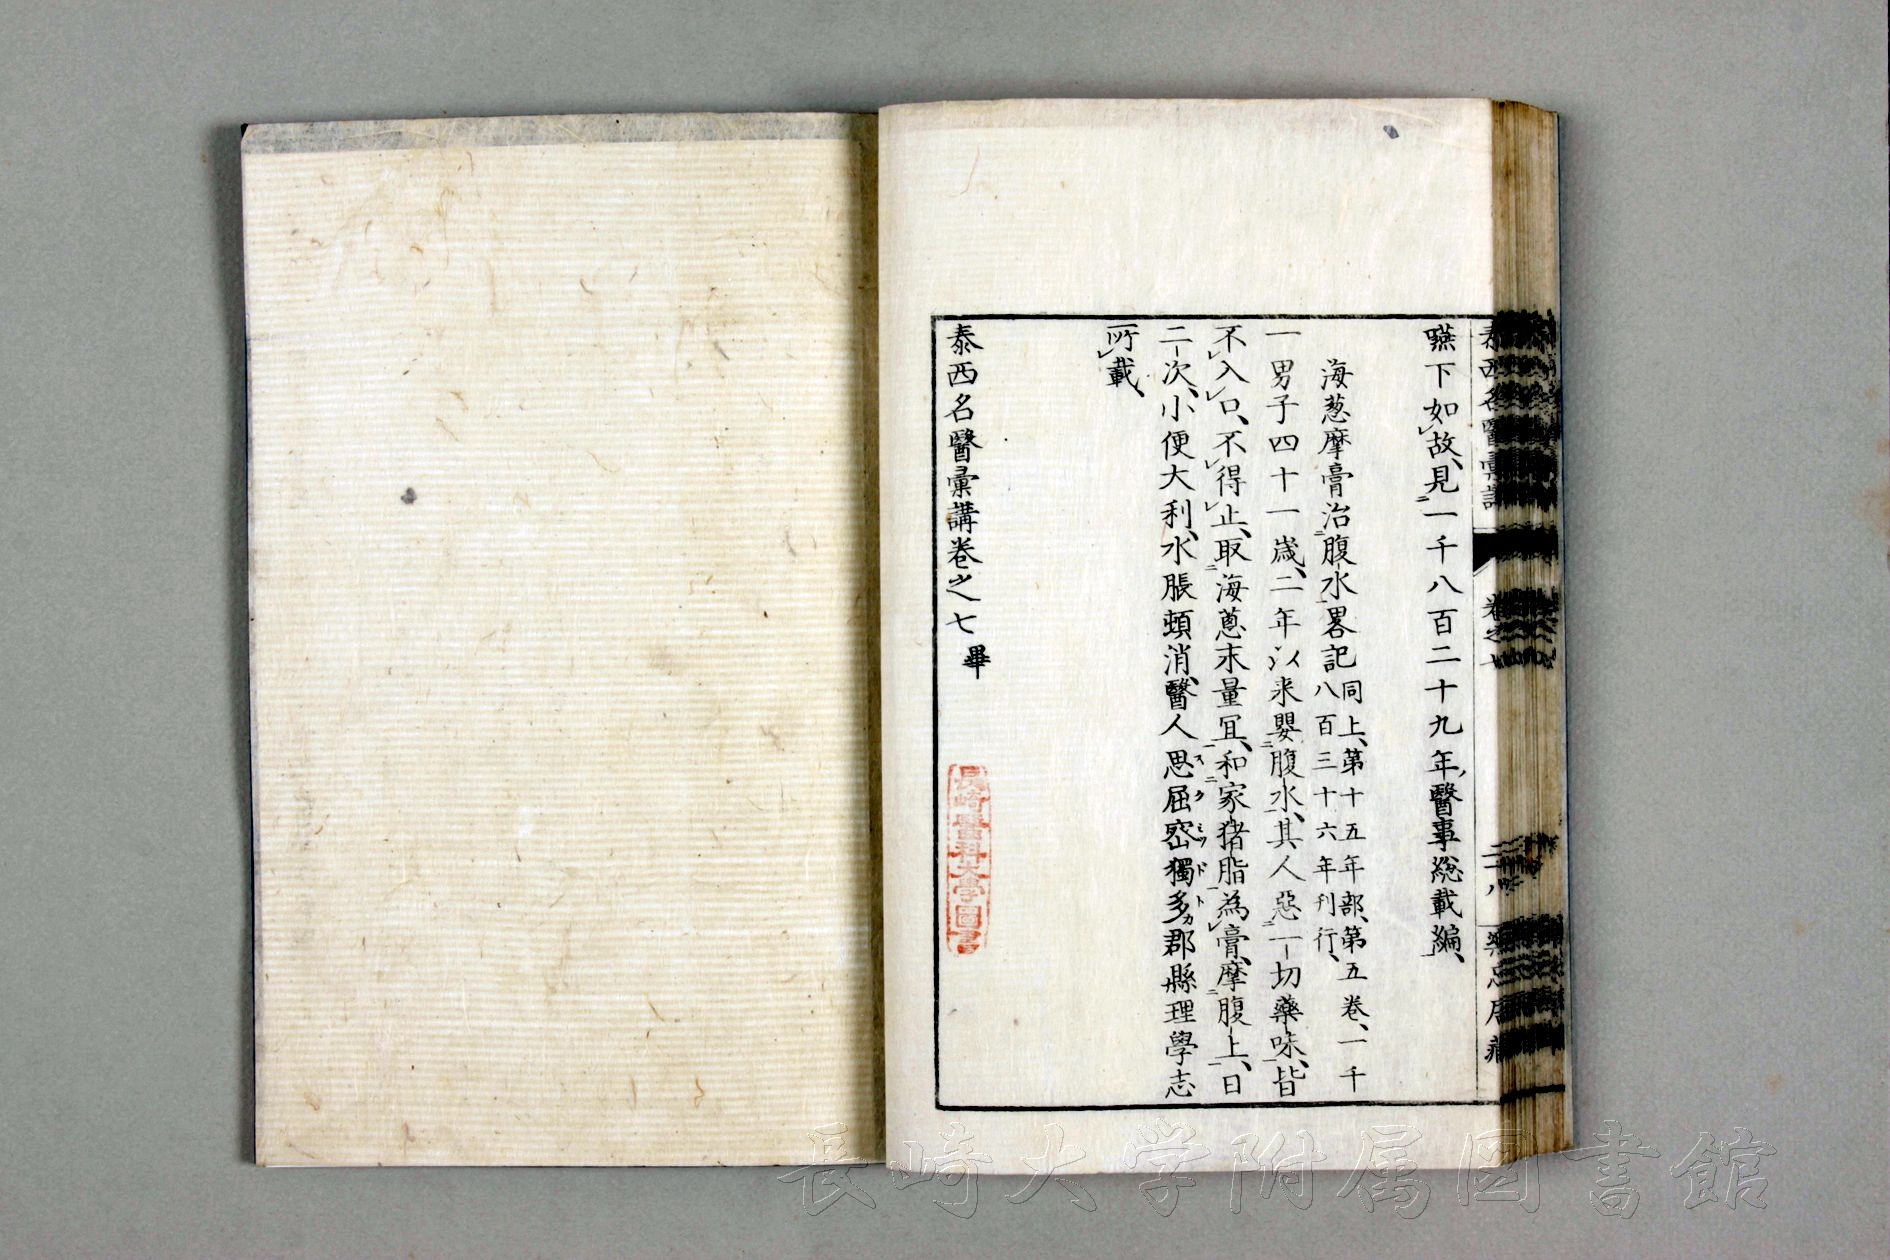 嚥下如故、見一千八百二十九年、醫事総載編、
海葱摩膏治腹水畧記同上、第十五年部、第五卷、一千
八百三十六年刊行、
一男子四十一歳、二年以来嬰腹水、其人惡一切藥味、皆
不入口、不得止、取海蔥末量冝、和家猪脂為膏、摩腹上、日
二次、小便大利、水脹頓消、醫人思屈宻獨多郡縣理學志
スクミツドトカ
所載、
泰西名醫彙講卷之七畢
長崎醫科大學圖書
泰西名醫彙講
卷之七
二十八
長崎大学附属図書館